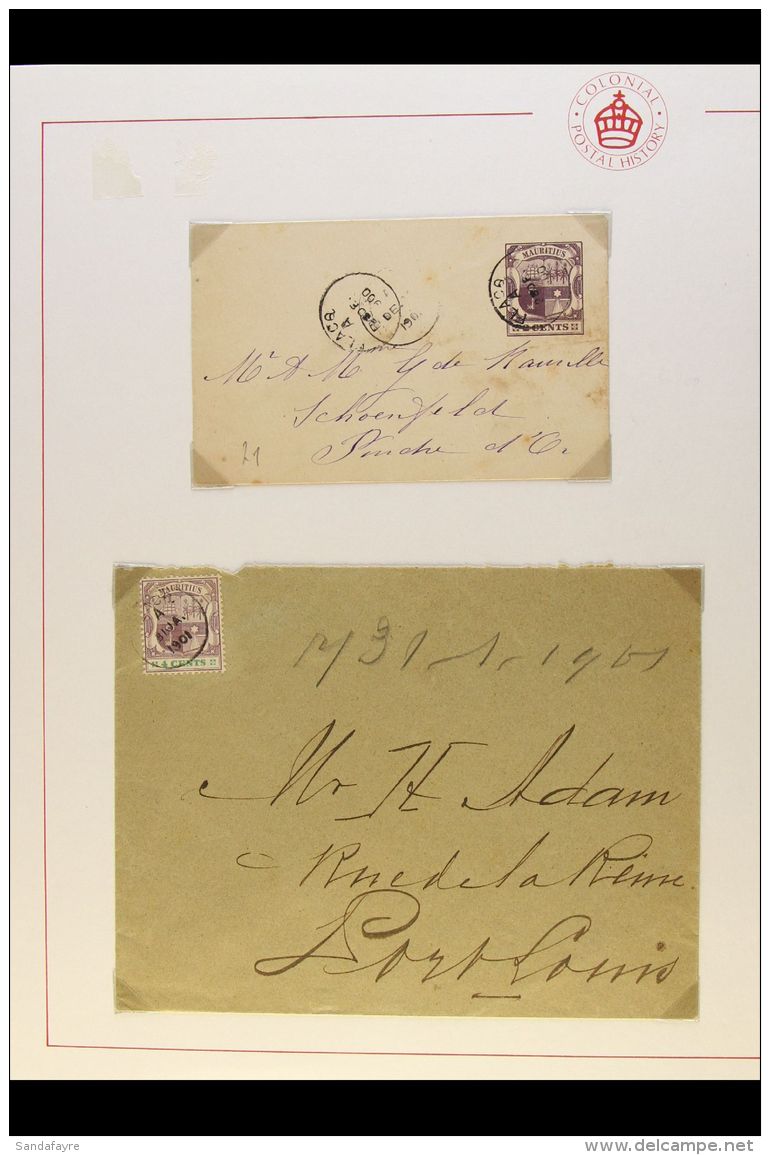 COLONIAL
POSTAL HISTORY
MAURITIUS
2 CENTS
FLACQ
A
FLACQ
A
DE
190
Mr & M G de
Schoenfeld
Poudre d'Or
21
MAURITIUS
4 CENTS
A
31 JA
1901
31-1-1901
Mr H. Adam
Rue de la Reine
Port Louis
Sandafayre
delcampe.net